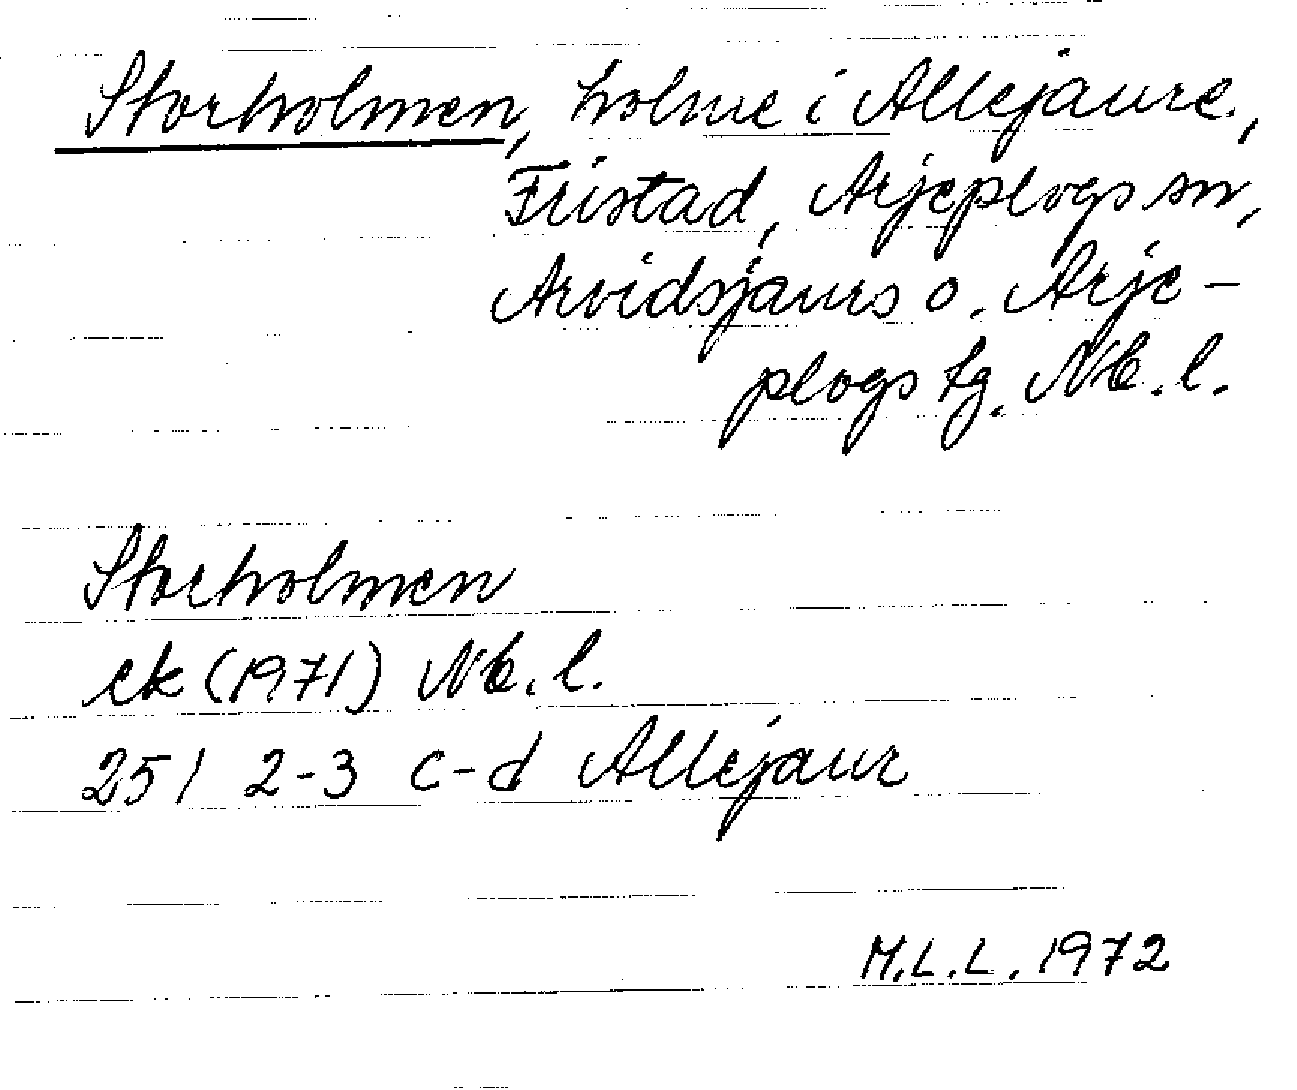 Storholmen, holme i Allejaure,
Fristad, Arjeplogs sn,
Arvidsjaurs o. Arje-
plogs tg. Nb. l.
Storholmen
ek (1971) Nb. l.
25 I 2-3 c-d Allejaur
M.L.L. 1972